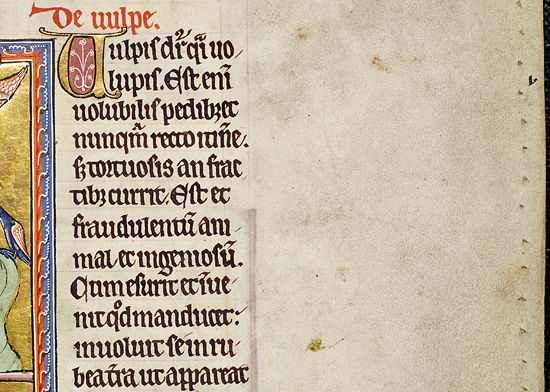 De uulpe.
Uulpis dr̄ q̄i uo
lupis. Est eni̅
uolubilis pedibꝫ et
nunqm̅ recto itine̅.
sꝫ tortuosis an frac
tibꝫ currit. Est et
fraudulentu̅ ani
mal. et ingeniosu̅.
Cum esurit et i̅ue
nit qd̅ manducet:
inuoluit se in ru
bea t̅ra ut appareat